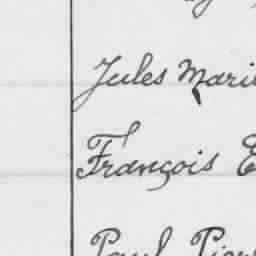 Jules Mari
François E
Paul Pier